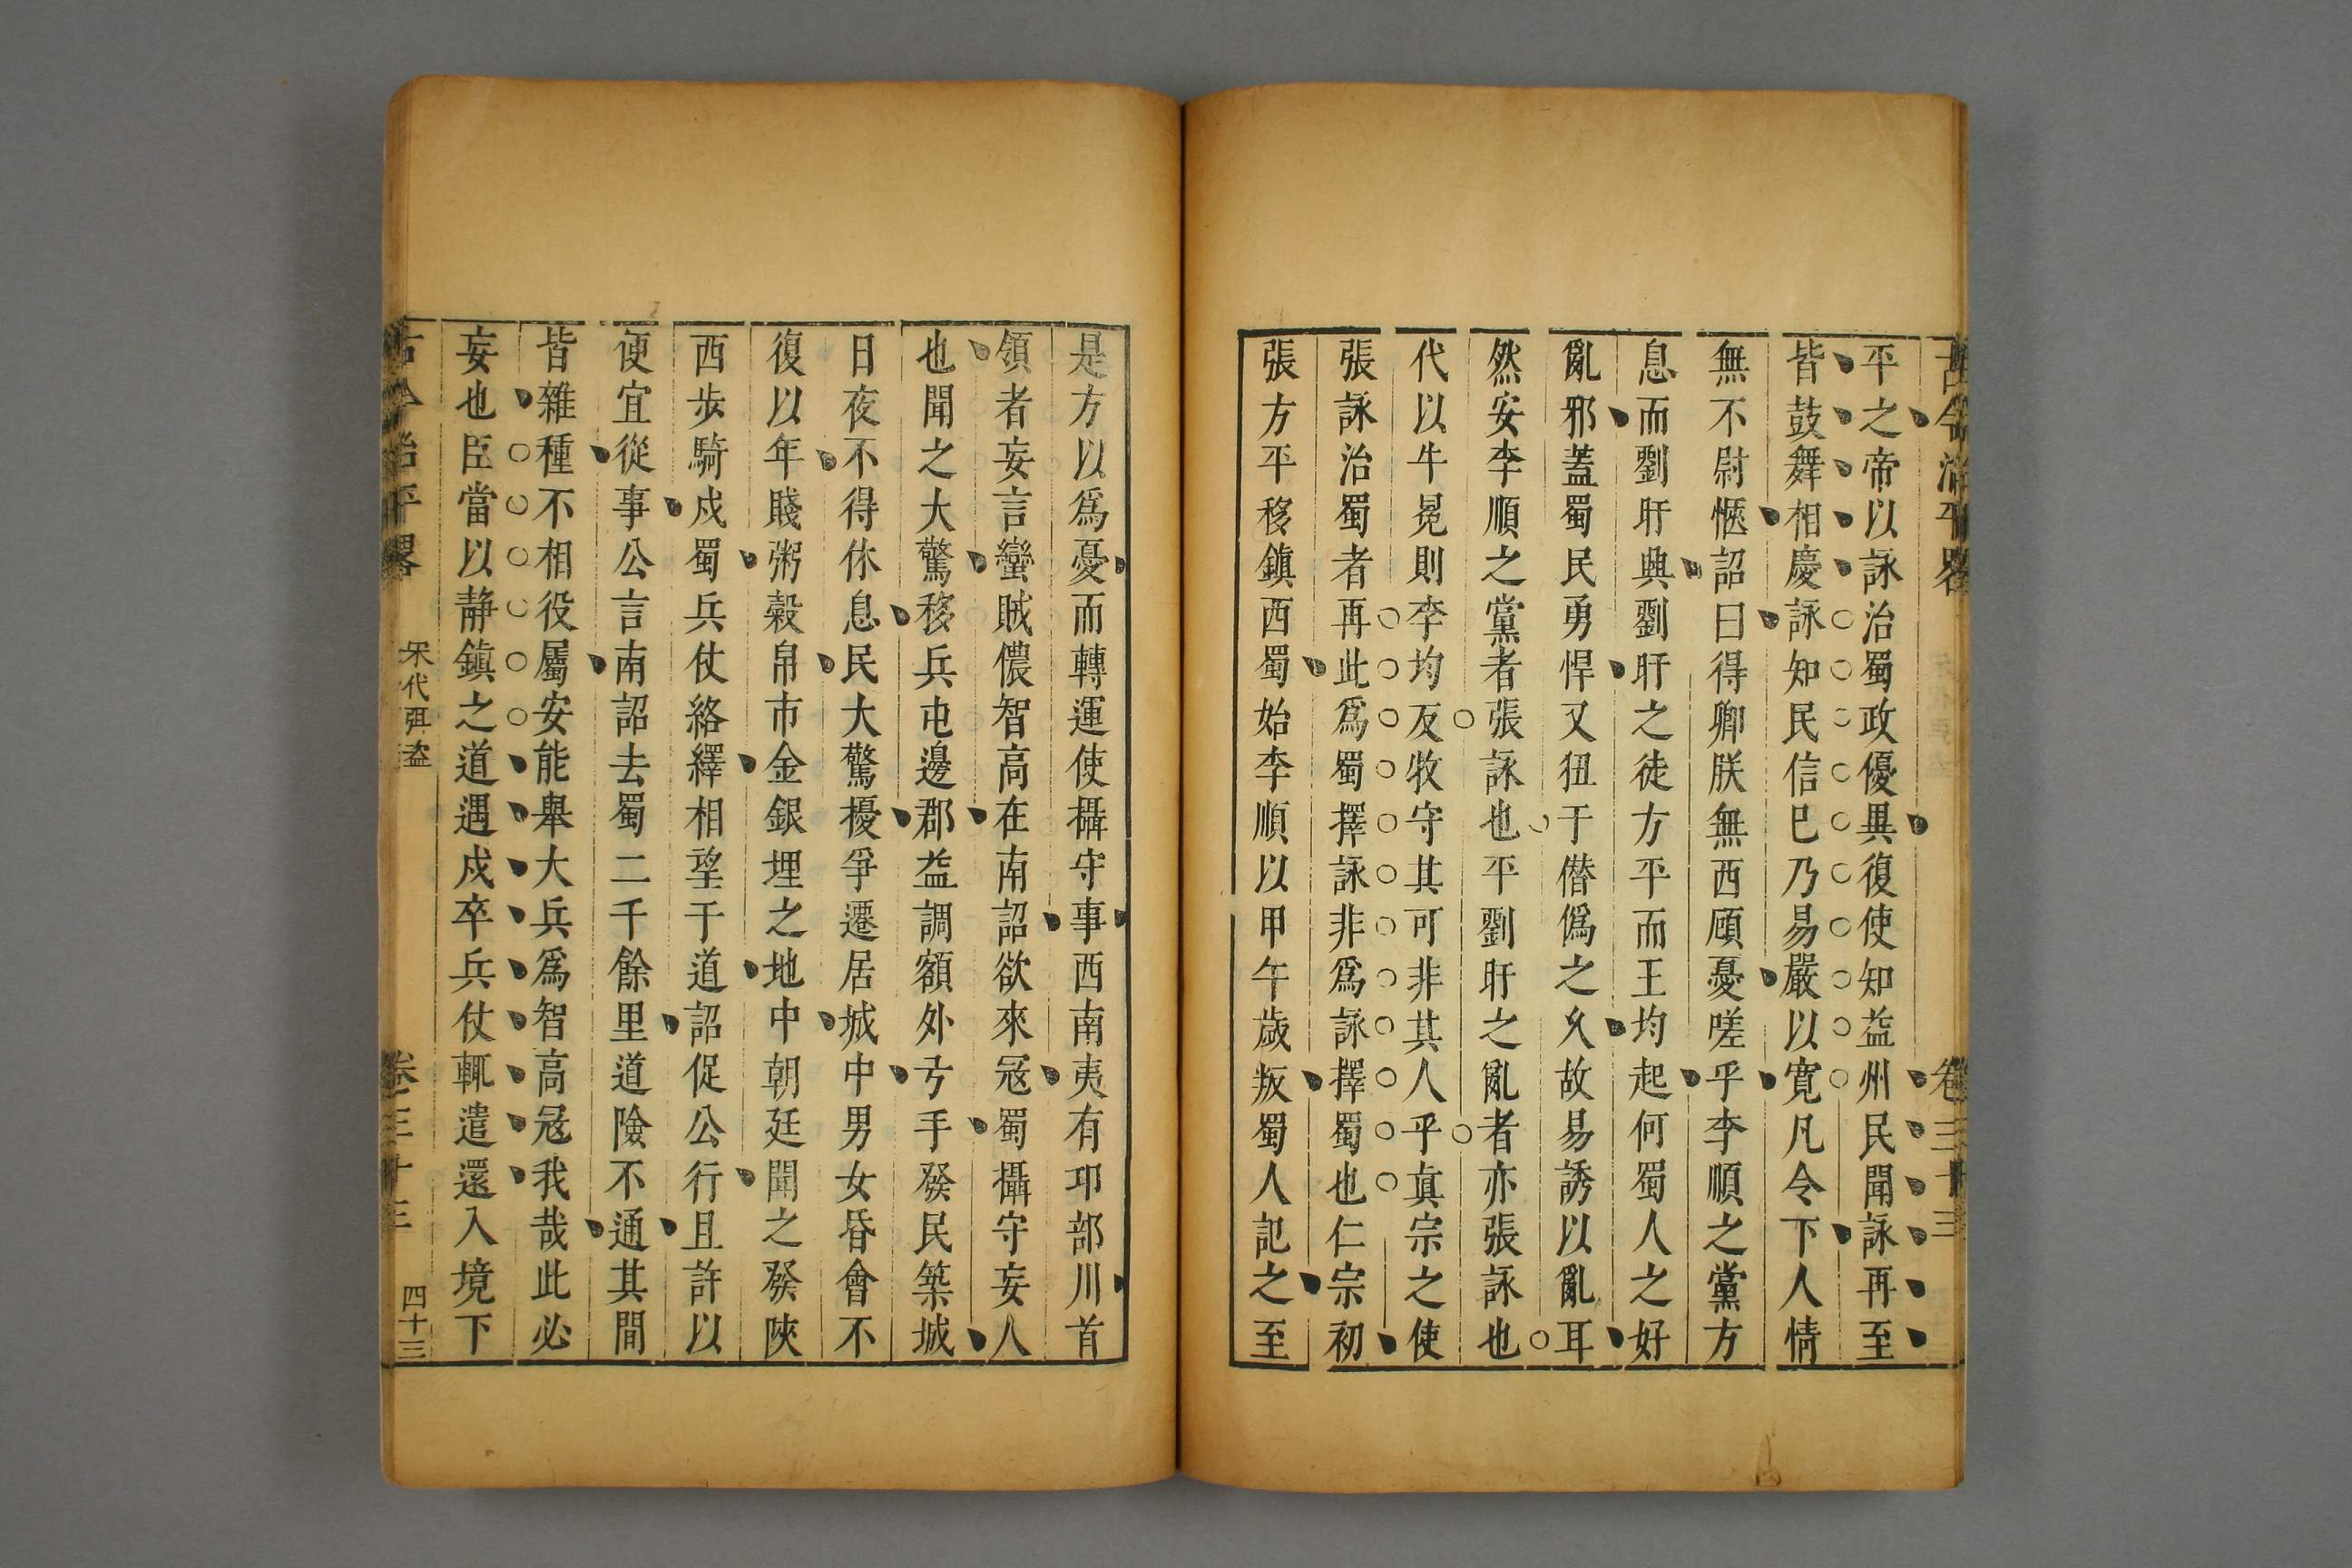 古今治平畧 卷三十三
平之帝以詠治蜀政優異復使知益州民聞詠再至
皆鼓舞相慶詠知民信巳乃易嚴以寛凡令下人情
無不尉愜詔曰得卿朕無西顧憂嗟乎李順之黨方
息而劉旰興劉旰之徒方平而王均起何蜀人之好
亂邪蓋蜀民勇悍又狃于僭僞之乆故易誘以亂耳
然安李順之黨者張詠也平劉旰之亂者亦張詠也
代以牛冕則李均反牧守其可非其人乎真宗之使
張詠治蜀者再此爲蜀擇詠非爲詠擇蜀也仁宗初
張方平移鎮西蜀始李順以甲午歲叛蜀人記之至
是方以爲憂而轉運使攝守事西南夷有邛部川首
領者妄言蠻賊儂智高在南詔欲來冦蜀攝守妄人
也聞之大驚移兵屯邊郡益調額外弓手發民築城
日夜不得休息民大驚擾爭遷居城中男女昏會不
復以年賤粥穀帛市金銀埋之地中朝廷聞之發陜
西步騎戍蜀兵仗絡繹相望于道詔促公行且許以
便宜從事公言南詔去蜀二千餘里道險不通其間
皆雜種不相役屬安能舉大兵爲智高冦我哉此必
妄也臣當以静鎮之道遇戍卒兵仗輒遣還入境下
古今治平畧 宋代弭盗 卷三十三 四十三